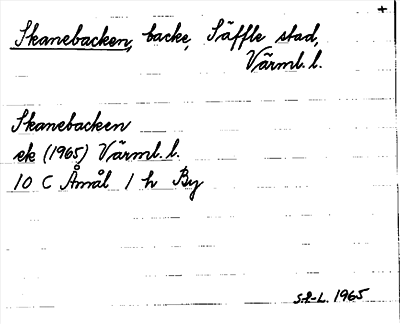 +
Skanebacken, backe, Säffle stad,
Värml. l.
Skanebacken
ek (1965) Värml. l.
10 C Åmål 1 h By
S.E-L. 1965